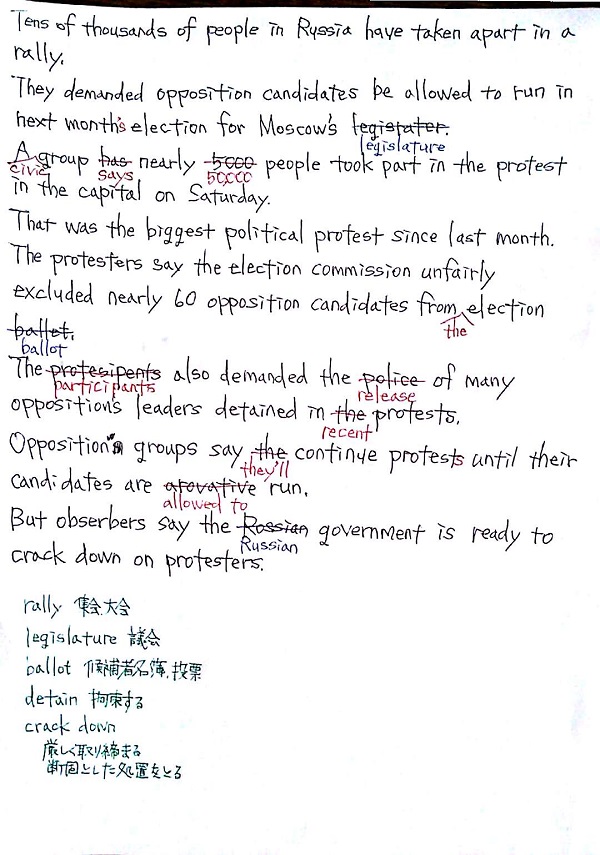 Tens of thousands of people in Russia have taken apart in a
rally.
They demanded opposition candidates be allowed to run in
next month's election for Moscow's legistater.
legislature
A group has nearly 5000 people took part in the protest
civic says 50,000
in the capital on Saturday.
That was the biggest political protest since last month.
The protesters say the election commission unfairly
excluded nearly 60 opposition candidates from election
the
ballot.
ballot
The protesipents also demanded the police of many
participants release
opposition's leaders detained in the protests.
recent
Opposition groups say the continue protests until their
they'll
candidates are arovative run.
allowed to
But obserbers say the Rossian government is ready to
Russian
crack down on protesters.
rally 集会、大会
legislature 議会
ballot 候補者名簿、投票
detain 拘束する
crack down
厳しく取り締まる
断固とした処置をとる